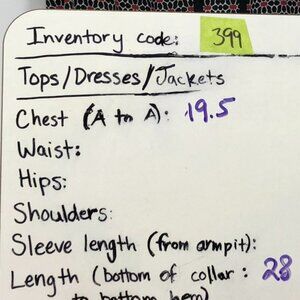 Inventory code: 399
Tops/Dresses/Jackets
Chest (A to A): 19.5
Waist:
Hips:
Shoulders:
Sleeve length (from armpit):
Length (bottom of collar : 28
to bottom hem)